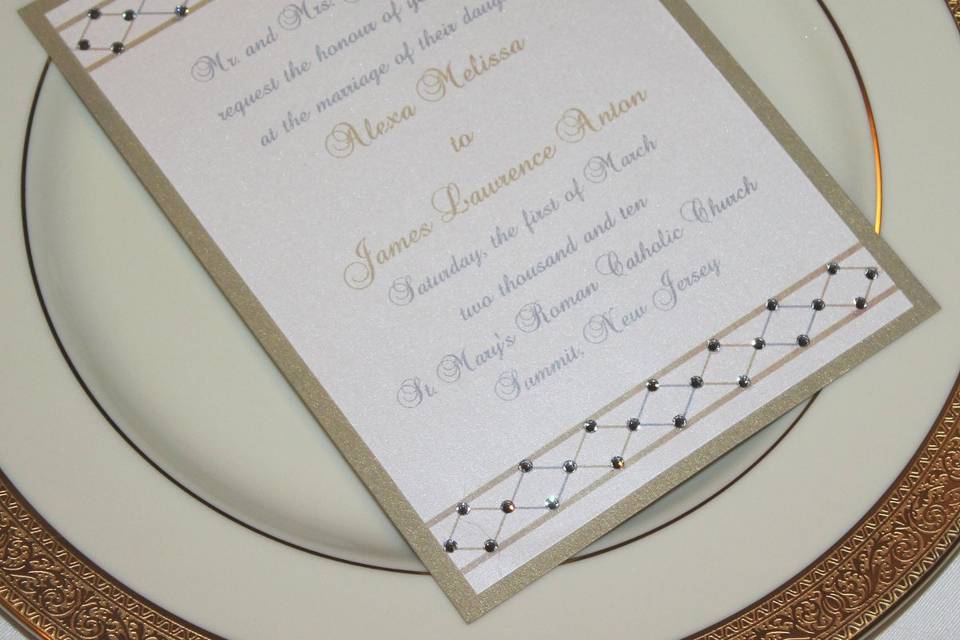 Mr. and Mrs.
request the honour of
at the marriage of their
Alexa Melissa
to
James Lawrence Anton
Saturday, the first of March
two thousand and ten
St. Mary's Roman Catholic Church
Summit, New Jersey